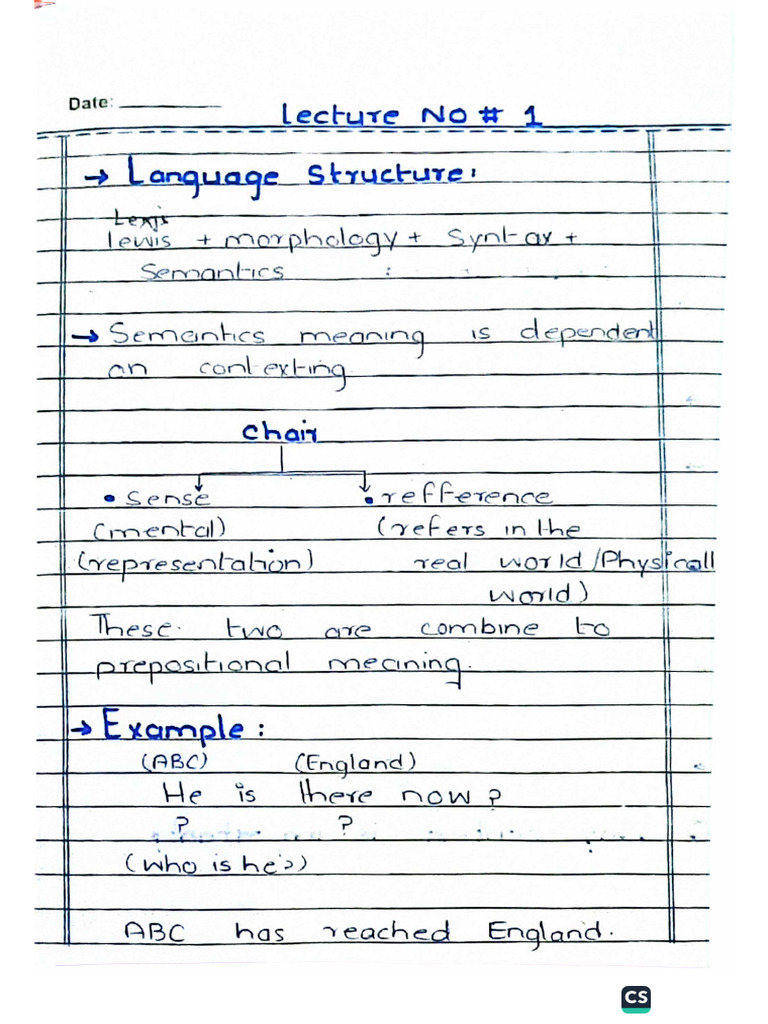 Date:
Lecture No # 1
→ Language Structure:
Lexis
lewis + morphology + Syntax +
Semantics :
→ Semantics meaning is dependent
an contexting.
Chair
• Sense • refference
(mental) (refers in the
(representation) real world/Physicall
world)
These two are combine to
prepositional meaning.
→ Example:
(ABC) (England)
He is there now?
? ?
(Who is he?)
ABC has reached England.
CS